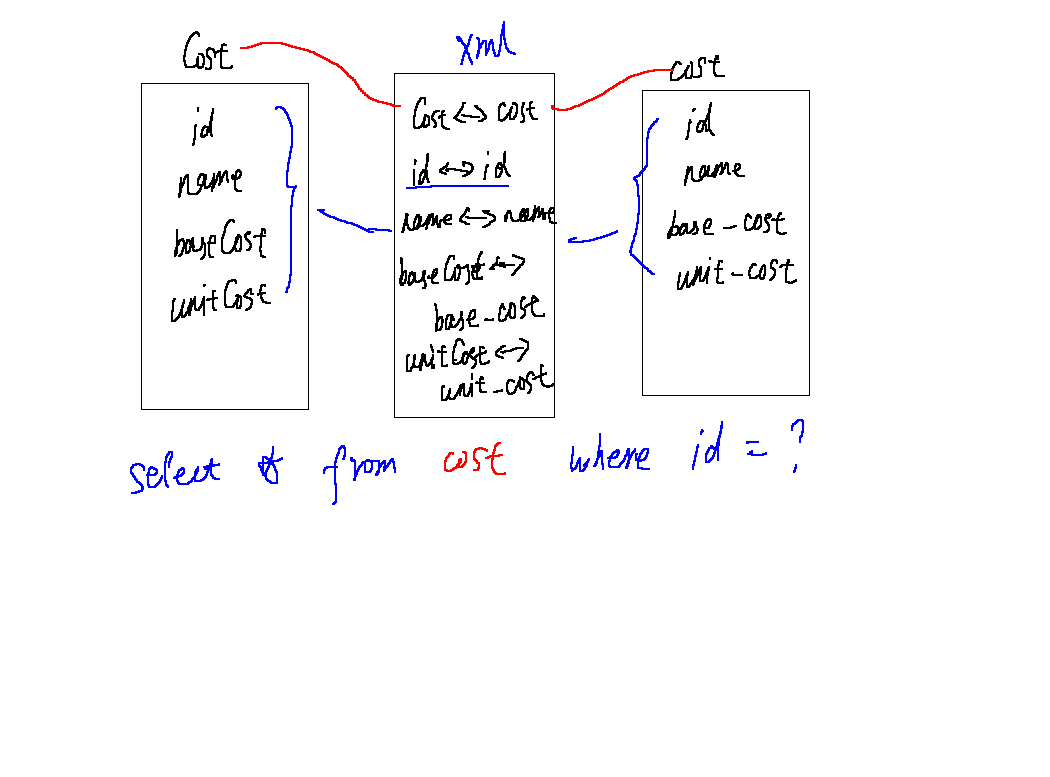 Cost
id
name
baseCost
unitCost
xml
Cost <-> cost
id <-> id
name <-> name
baseCost <->
base-cost
unitCost <->
unit-cost
cost
id
name
base-cost
unit-cost
select * from cost where id = ?